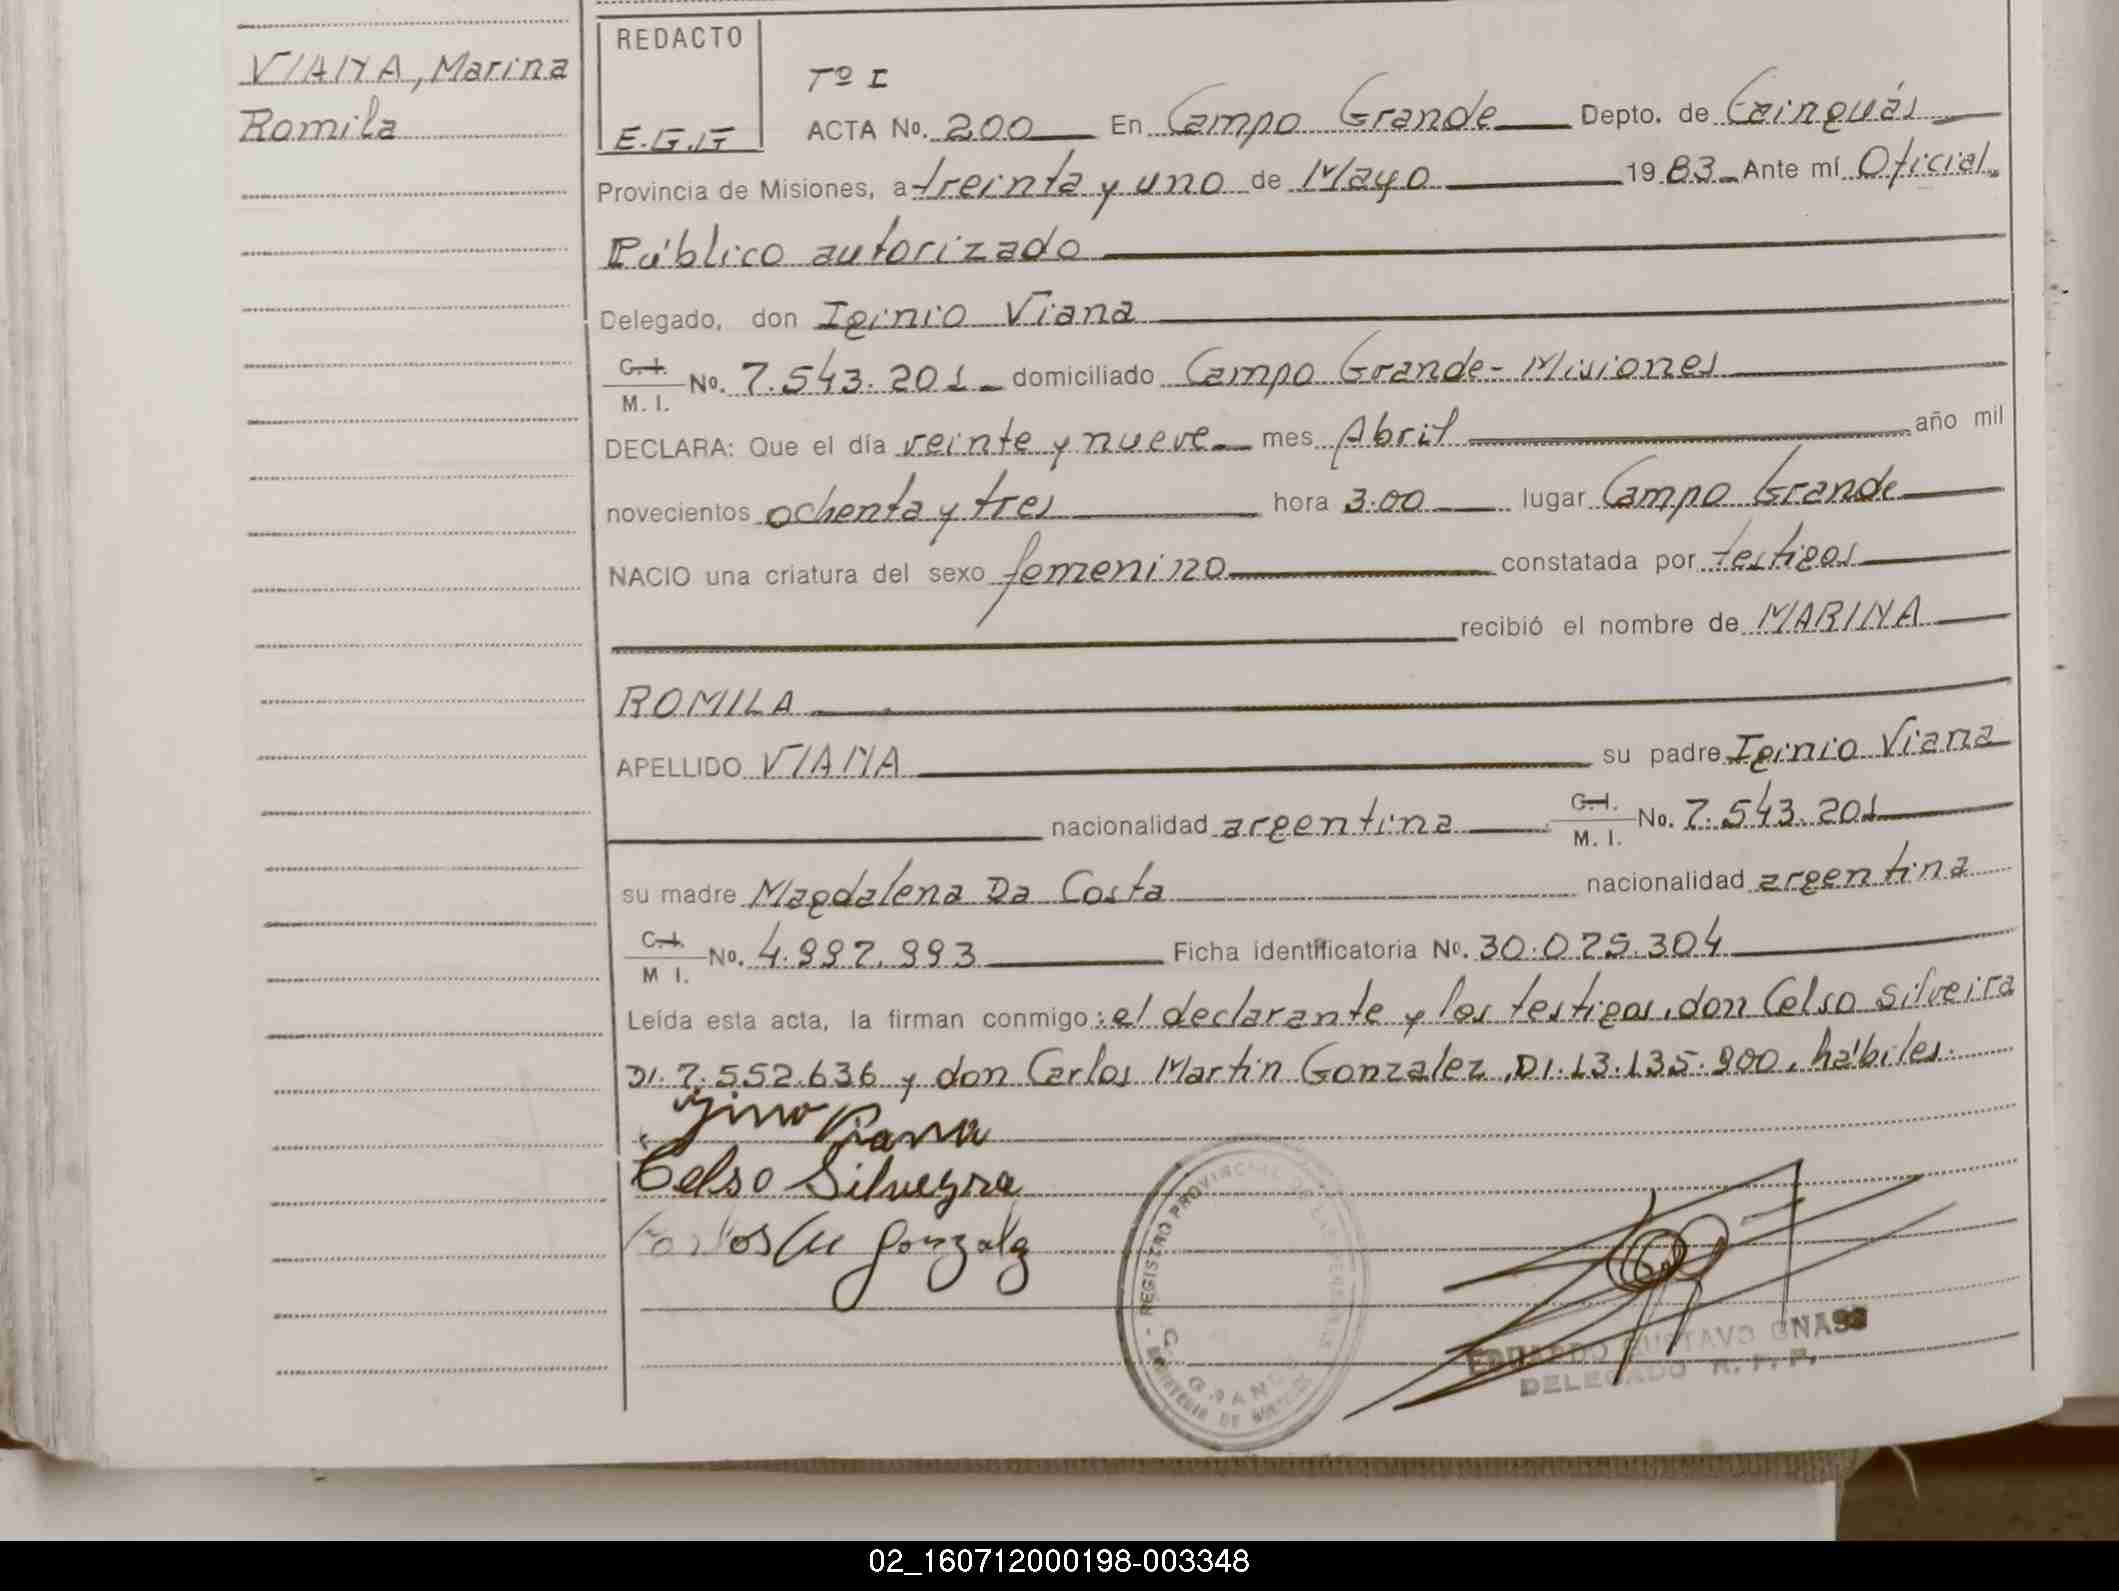 VIANA, Marina
Romila
REDACTO
E.G.G
Tº I
ACTA No. 200 En Campo Grande Depto. de Cainguás
Provincia de Misiones, a treinta y uno de Mayo 1983 Ante mí Oficial
Público autorizado
Delegado, don Iginio Viana
C.I. M. I. No. 7.543.201 domiciliado Campo Grande - Misiones
DECLARA: Que el día veinte y nueve mes Abril año mil
novecientos ochenta y tres hora 3.00 lugar Campo Grande
NACIO una criatura del sexo femenino constatada por testigos
recibió el nombre de MARINA
ROMILA
APELLIDO VIANA su padre Iginio Viana
nacionalidad argentina C.I. M. I. No. 7.543.201
su madre Magdalena Da Costa nacionalidad argentina
C.I. M I. No. 4.997.993 Ficha identificatoria No. 30.075.304
Leída esta acta, la firman conmigo: el declarante y los testigos, don Celso Silveira
DI. 7.552.636 y don Carlos Martin Gonzalez, DI. 13.135.900, hábiles.
Viana
Celso Silveyra
Carlos M Gonzalez
REGISTRO PROVINCIAL DE LAS PERSONAS
C. GRANDE
EDUARDO GUSTAVO GNASS
DELEGADO R. P. P.
02_160712000198-003348